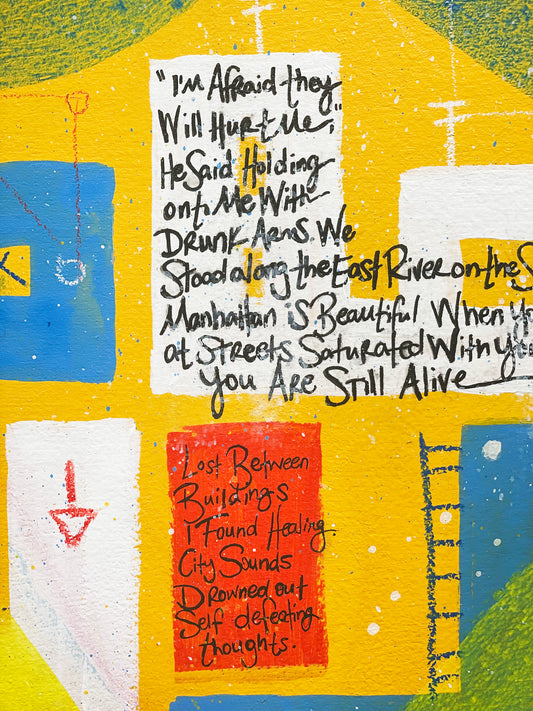 "I'm Afraid they
Will Hurt Me,"
He Said Holding
onto Me With
Drunk Arms. We
Stood along the East River on the
Manhattan is Beautiful When
at Streets Saturated With
You Are Still Alive
Lost Between
Buildings
I Found Healing.
City Sounds
Drowned out
Self defeating
thoughts.